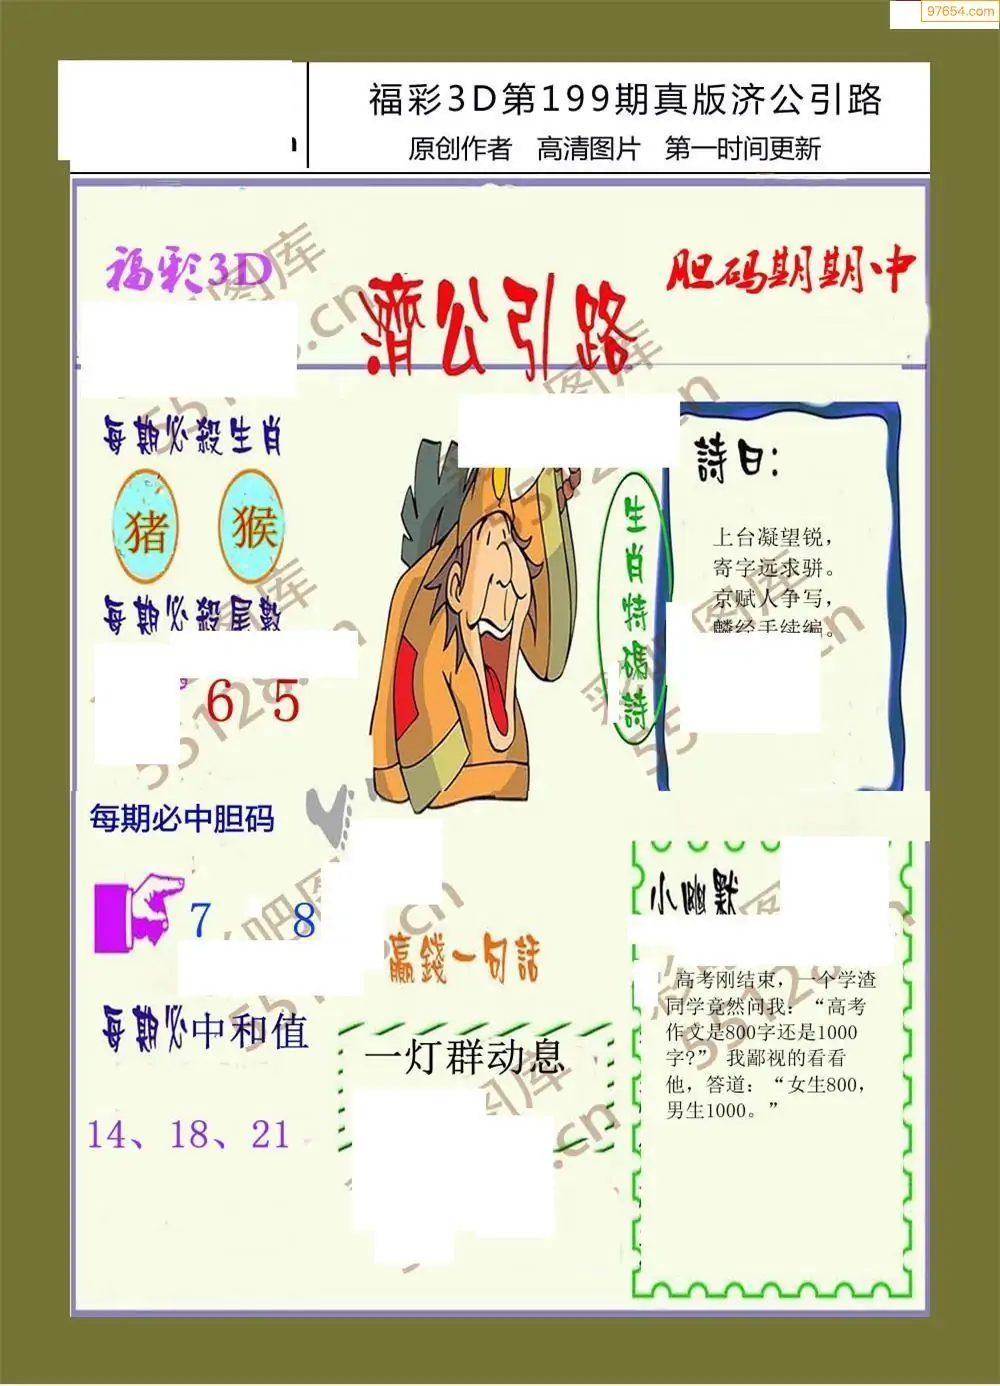 97654.com
福彩3D第199期真版济公引路
原创作者 高清图片 第一时间更新
福彩3D
胆码期期中
濟公引路
每期必殺生肖
猪 猴
每期必殺尾數
6 5
生肖特碼詩
詩曰:
上台凝望锐，
寄字远求骈。
京赋人争写，
麟经手续编。
每期必中胆码
7 8
每期必中和值
14、18、21
贏錢一句話
一灯群动息
小幽默
高考刚结束，一个学渣
同学竟然问我：“高考
作文是800字还是1000
字?” 我鄙视的看看
他，答道：“女生800，
男生1000。”
彩吧图库
55128.cn